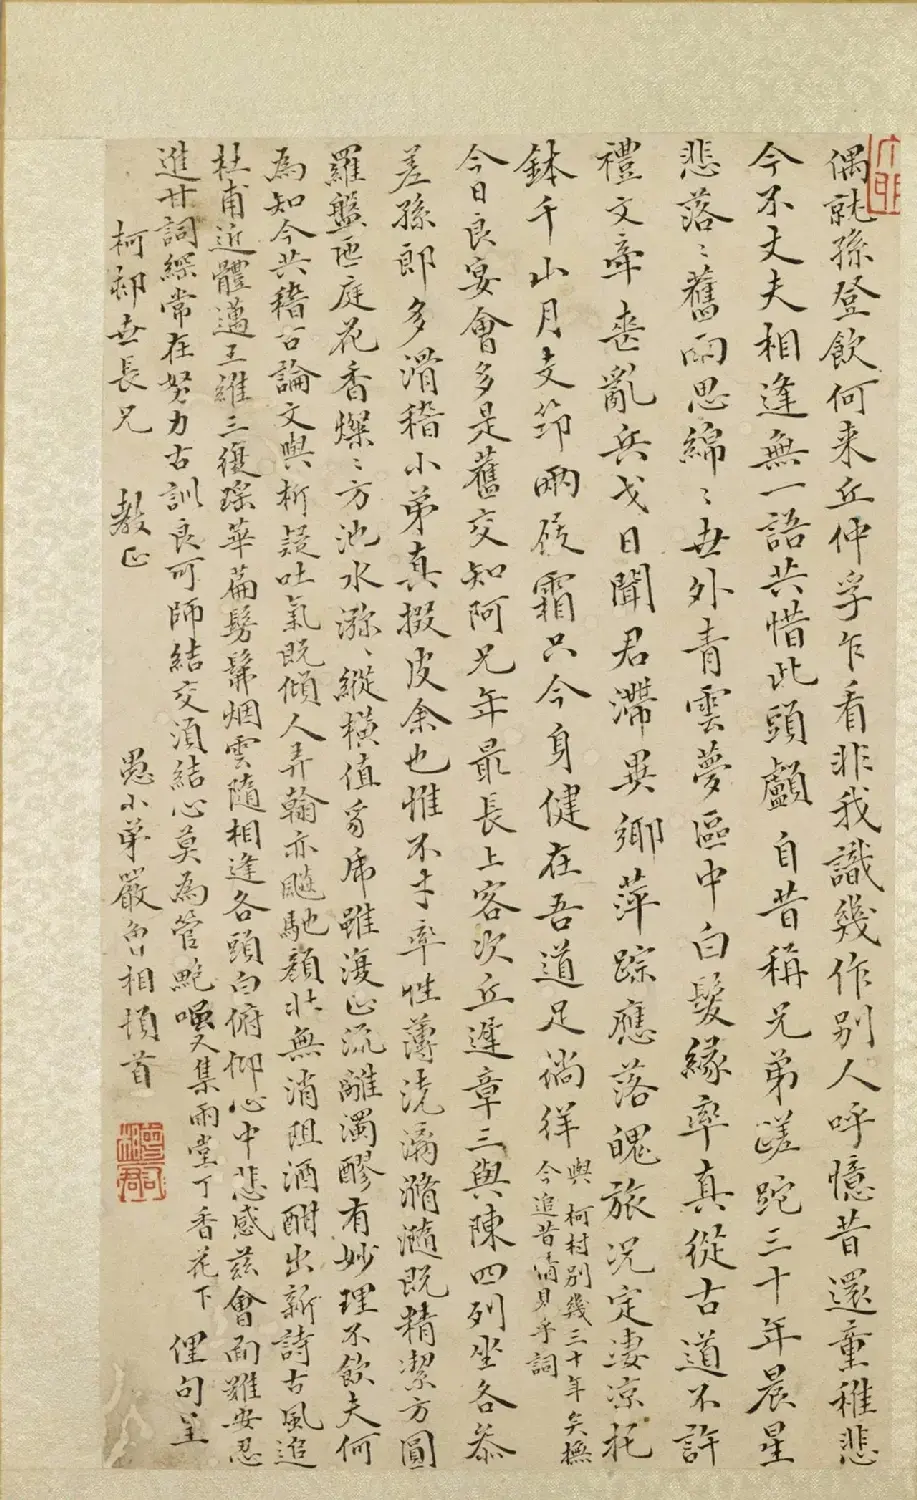 偶就孫登飲何来丘仲孚乍看非我識幾作别人呼憶昔還童稚悲
今不丈夫相逢無一語共惜此頭顱自昔稱兄弟蹉跎三十年晨星
悲落〻舊雨思綿〻世外青雲夢區中白髮緣率真從古道不許
禮文牽喪亂兵戈日聞君滯異鄉萍踪應落魄旅况定淒凉托
鉢千山月支笻兩鬢霜只今身健在吾道足徜徉
與柯村別幾三十年矣撫
今追昔情見乎詞
今日良宴會多是舊交知阿兄年最長上客次丘遲章三與陳四列坐各恭
差孫郎多滑稽小弟真掇皮余也惟不才率性薄澆漓滫瀡既精潔方圓
羅盤匜庭花香燦〻方池水瀰〻縱横值豸席雖復正流離濁醪有妙理不飲夫何
為知今共稽古論文與析疑吐氣既傾人弄翰亦颷馳顏壯無消阻酒酣出新詩古風追
杜甫近體邁王維三復瑤華篇髣髴烟雲隨相逢各頭白俯仰心中悲感茲會面難安忍
進甘詞繆常在努力古訓良可師結交須結心莫為管鮑嗤又集雨堂丁香花下 俚句呈
柯邨世長兄 教正 愚小弟嚴曾相頓首